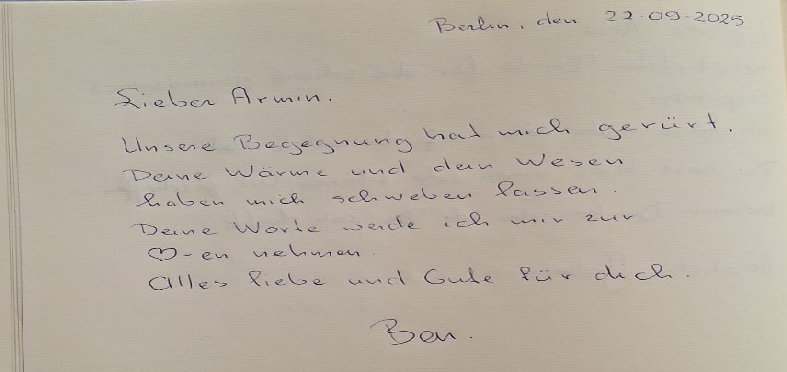 Berlin, den 22.09.2025
Lieber Armin.
Unsere Begegnung hat mich gerürt.
Deine Wärme und dein Wesen
haben mich schweben lassen.
Deine Worte werde ich mir zur
♡-en nehmen.
Alles liebe und Gute für dich.
Ben.